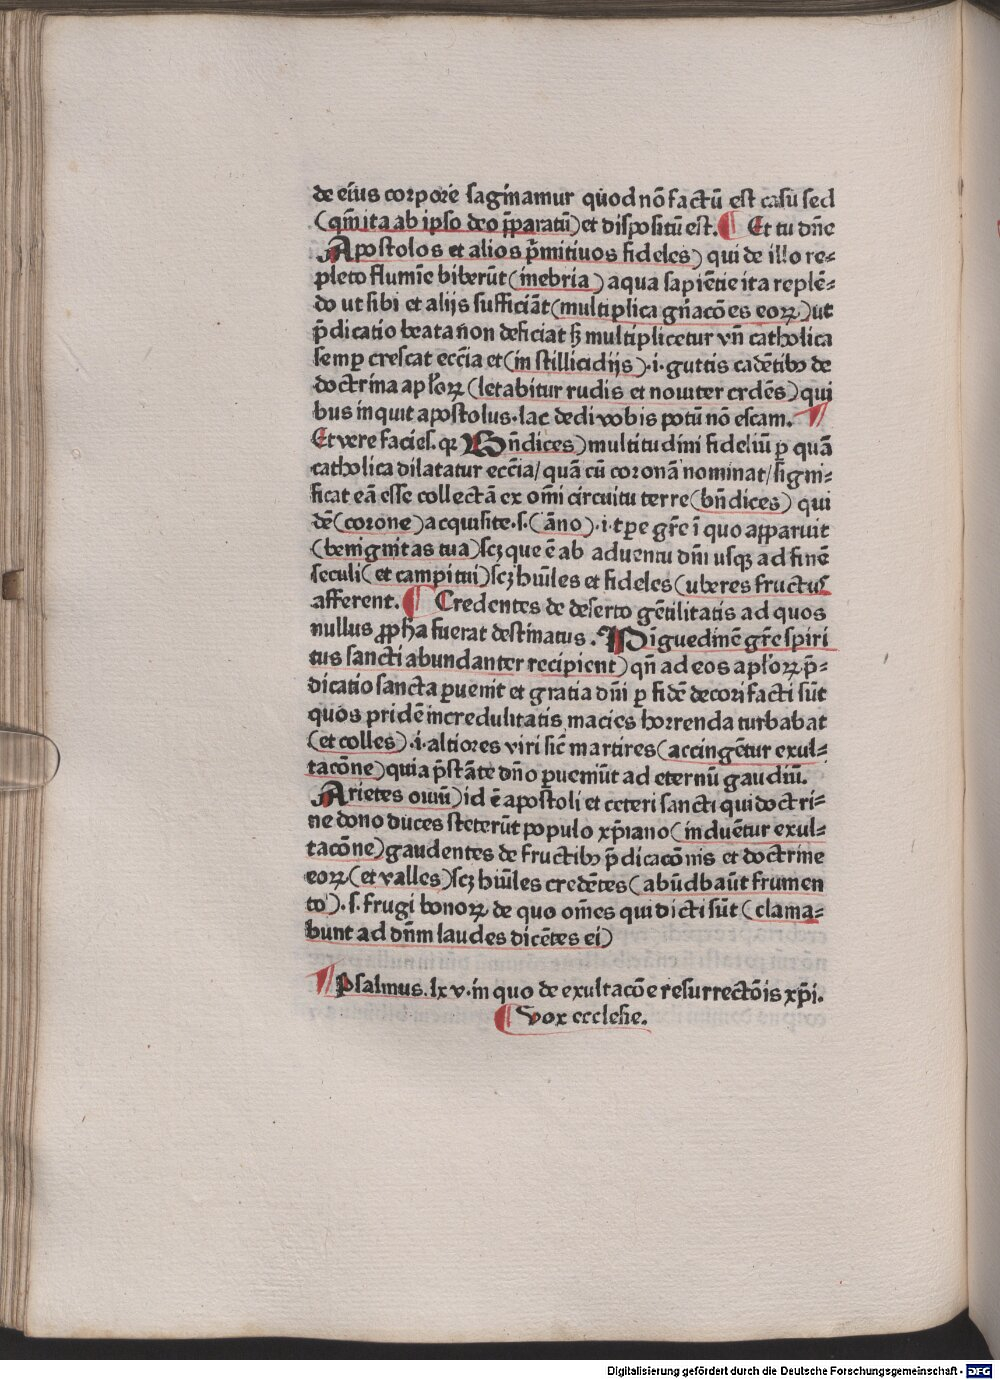 de eiꝰ corpore saginamur quod nō factū est casu sed
(qm̄ ita ab ipso deo p̄paratū) et dispositū est. ¶ Et tu dn̄e
Apostolos et alios p̄mitiuos fideles) qui de illo re⸗
pleto flumīe biberūt (inebria) aqua sapiētie ita replē⸗
do ut sibi et alijs sufficiāt (multiplica gn̄acōes eoꝝ) ut
p̄dicatio beata non deficiat sꝫ multiplicetur vn̄ catholica
semꝑ crescat ecc̄ia et (in stillicidijs) .i. guttis cadētibꝫ de
doctrina apl̄oꝝ (letabitur rudis et nouiter crdēs) qui
bus inquit apostolus. lac dedi vobis potū nō escam. ¶
Et vere facies. qꝛ Bn̄dices) multitudini fideliū ꝑ quā
catholica dilatatur ecc̄ia / quā cū coronā nominat / signi⸗
ficat eā esse collectā ex om̄i circuitu terre (bn̄dices) qui
dē (corone) acquisite .s. (āno) .i. tꝑe gr̄e ī quo apparuit
(benignitas tua) scꝫ que ē ab aduentu dn̄i usqꝫ ad finē
seculi (et campi tui) scꝫ hūiles et fideles (uberes fructus
afferent. ¶ Credentes de deserto gētilitatis ad quos
nullus ꝓpha fuerat destinatus. Pīguedinē gr̄e spiri
tus sancti abundanter recipient) qn̄ ad eos apl̄oꝝ p̄⸗
dicatio sancta ꝑuenit et gratia dn̄i ꝑ fidē decori facti sūt
quos pridē incredulitatis macies horrenda turbabat
(et colles) .i. altiores viri sic̄ martires (accingētur exul⸗
tacōne) quia p̄stāte dn̄o ꝑuemūt ad eternū gaudiū.
Arietes ouiū) id ē apostoli et ceteri sancti qui doctri⸗
ne dono duces steterūt populo xp̄iano (induētur exul⸗
tacōne) gaudentes de fructibꝫ p̄dicacōnis et doctrine
eoꝝ (et valles) scꝫ hūiles credētes (abūdbaūt frumen
to) .s. frugi bonoꝝ de quo om̄es qui dicti sūt (clama⸗
bunt ad dn̄m laudes dicētes ei)
¶ Psalmus. lxv. in quo de exultacōe resurrectōis xp̄i.
¶ Vox ecclesie.
Digitalisierung gefördert durch die Deutsche Forschungsgemeinschaft - DFG